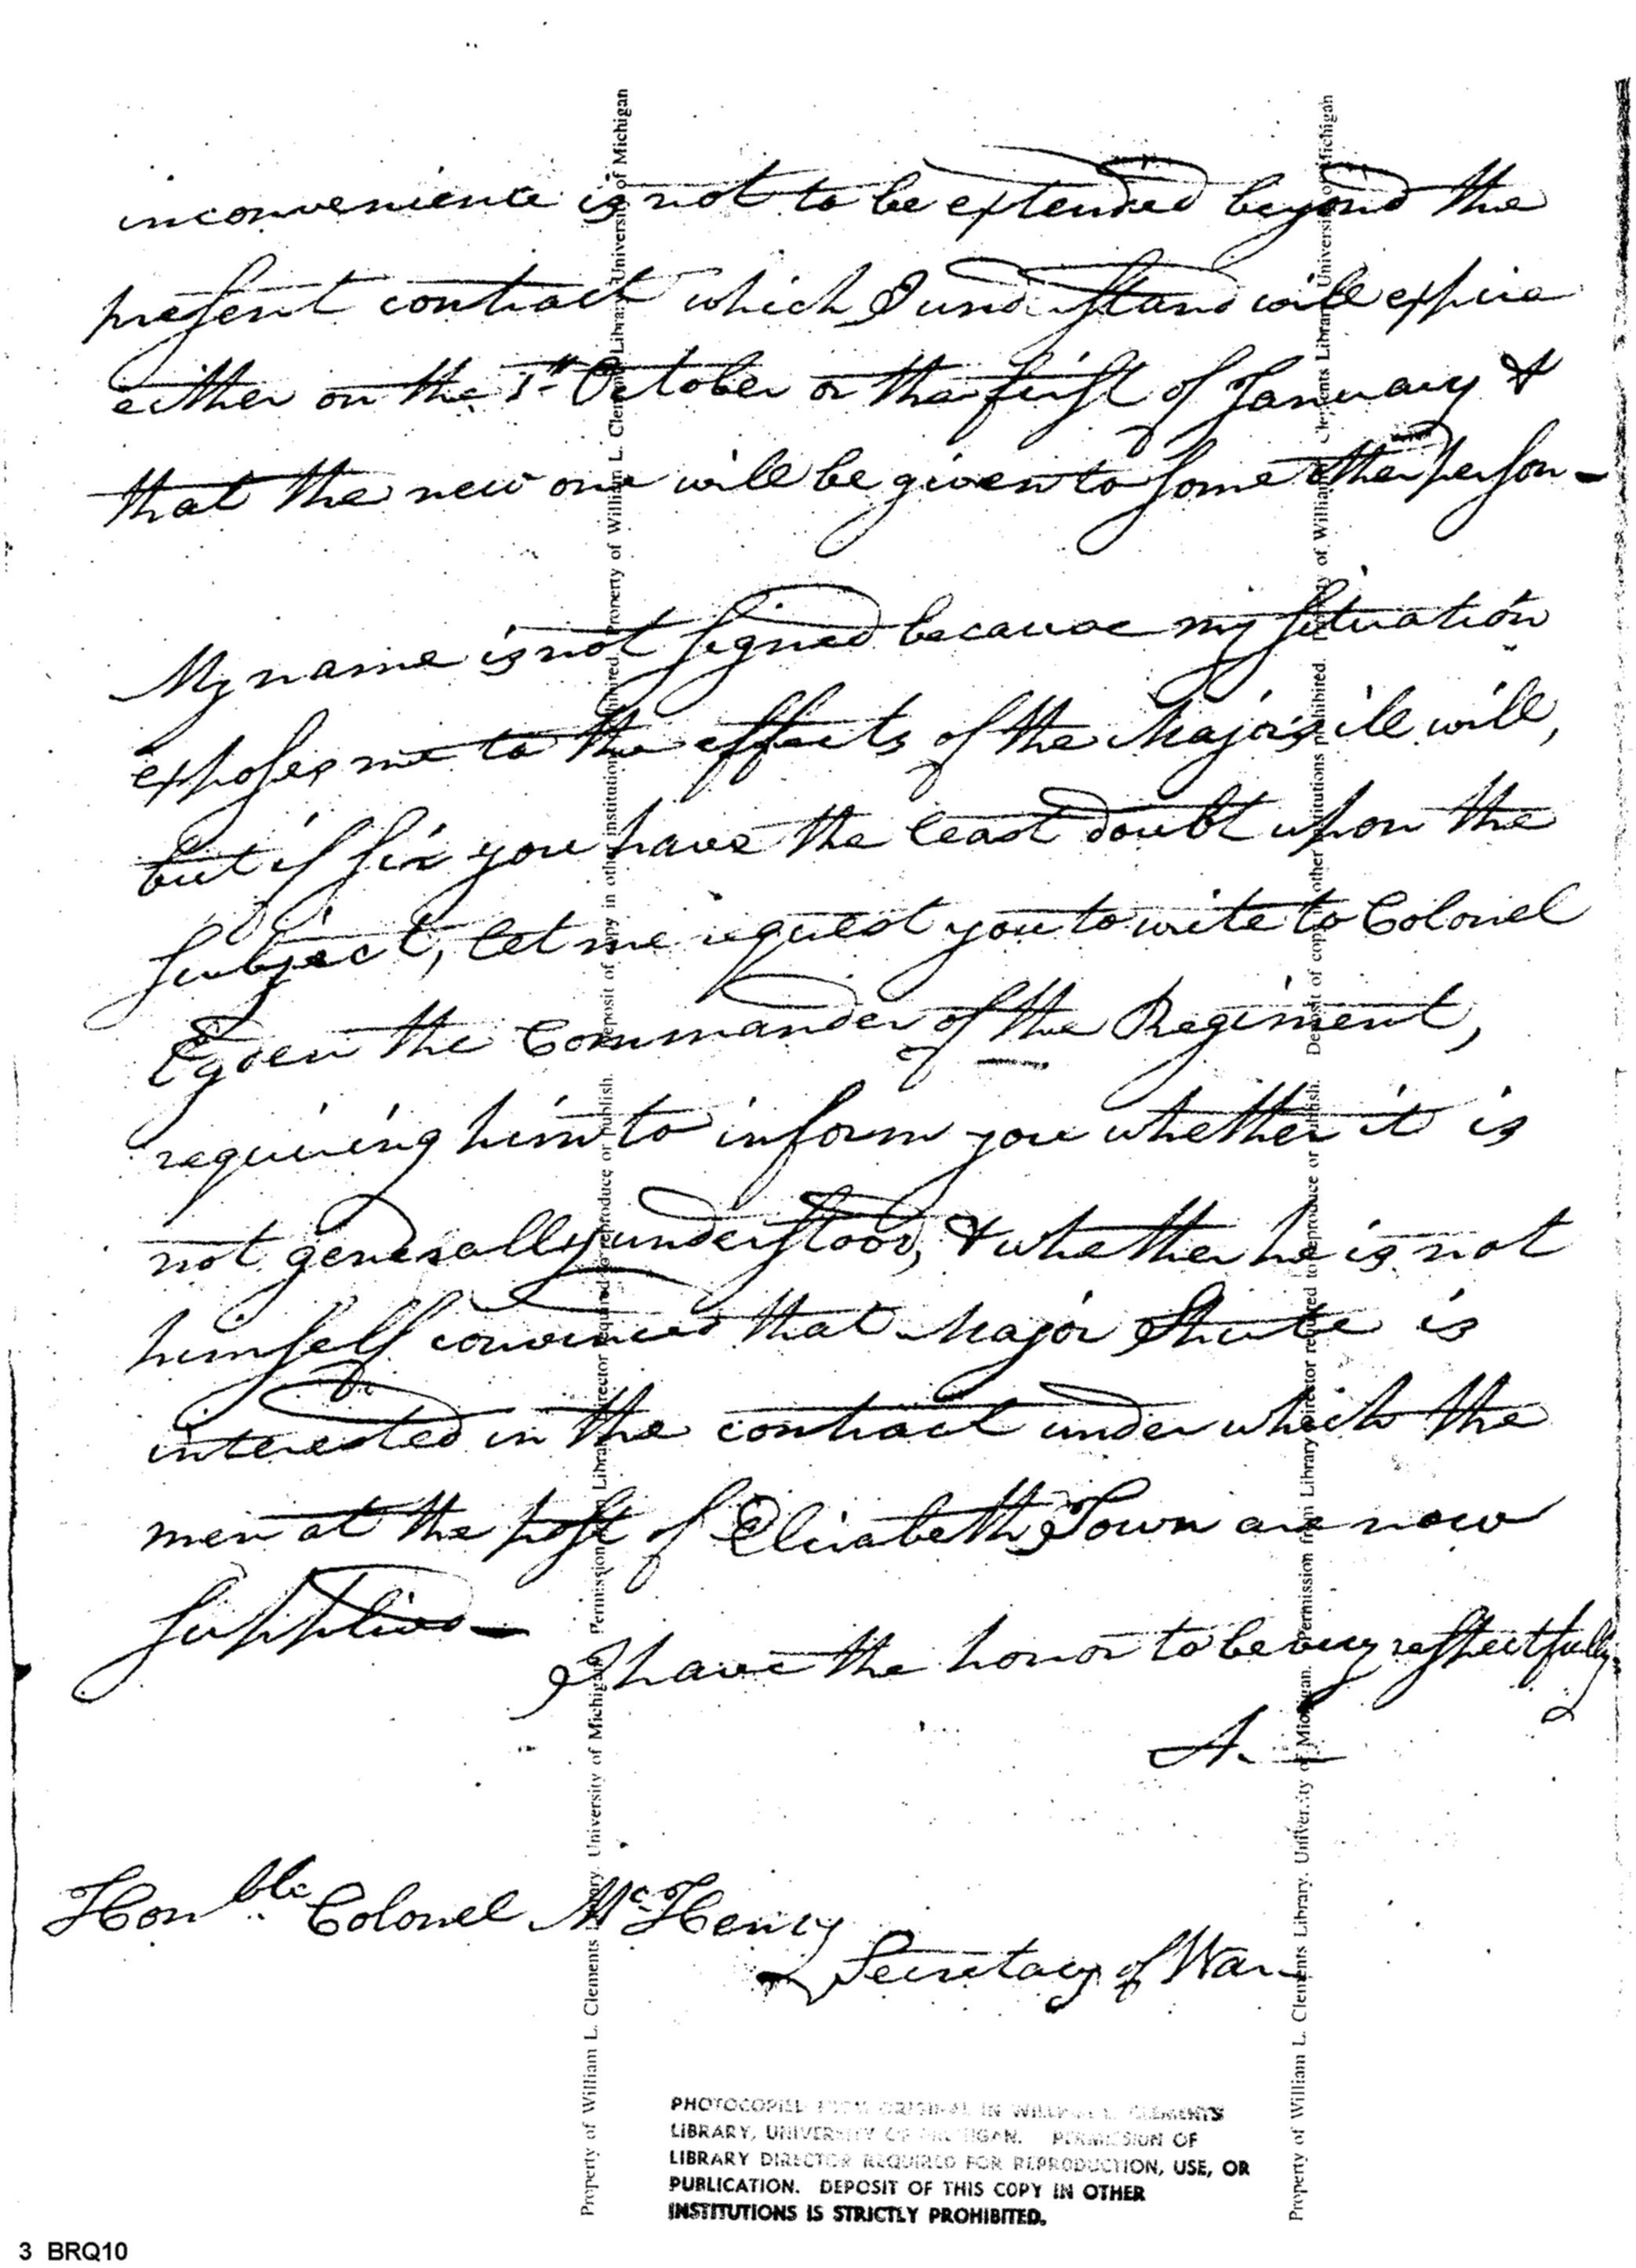 inconvenience is not to be extended beyond the
present contract which I understand will expire
either on the 1st October or the first of January &
that the new one will be given to some other person -
My name is not signed because my situation
exposes me to the effects of the Majors ill will,
but if sir you have the least doubt upon the
subject, let me request you to write to Colonel
Ogden the Commander of the Regiment,
requiring him to inform you whether it is
not generally understood, & whether he is not
himself convinced that Major Shute is
interested in the contract under which the
men at the post of Elizabeth Town are now
supplied -
I have the honor to be very respectfully
A.
Honble Colonel McHenry
Secretary of War
Property of William L. Clements Library. University of Michigan. Permission from Library Director required to reproduce or publish. Deposit of copy in other institutions prohibited. Property of William L. Clements Library. University of Michigan
Property of William L. Clements Library. University of Michigan. Permission from Library Director required to reproduce or publish. Deposit of copy in other institutions prohibited. Property of William L. Clements Library. University of Michigan
PHOTOCOPIED FROM ORIGINAL IN WILLIAM L. CLEMENTS
LIBRARY, UNIVERSITY OF MICHIGAN. PERMISSION OF
LIBRARY DIRECTOR REQUIRED FOR REPRODUCTION, USE, OR
PUBLICATION. DEPOSIT OF THIS COPY IN OTHER
INSTITUTIONS IS STRICTLY PROHIBITED.
3 BRQ10